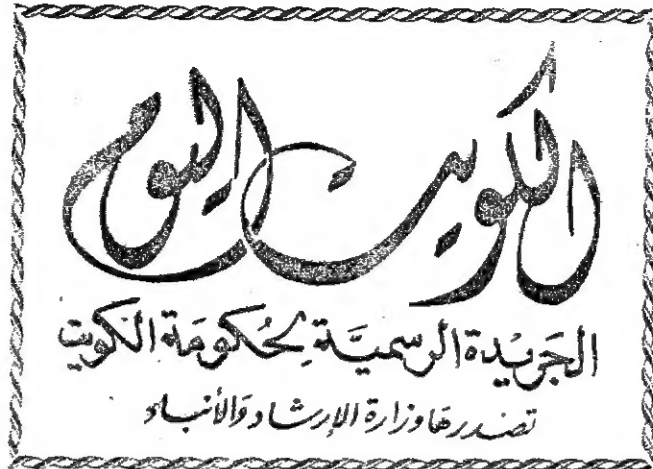 الكويت اليوم
الجَريْدة الرسميَّة لِحُكومَة الكويت
تصْدرهَا وزارة الإرشاد وَالأنباء